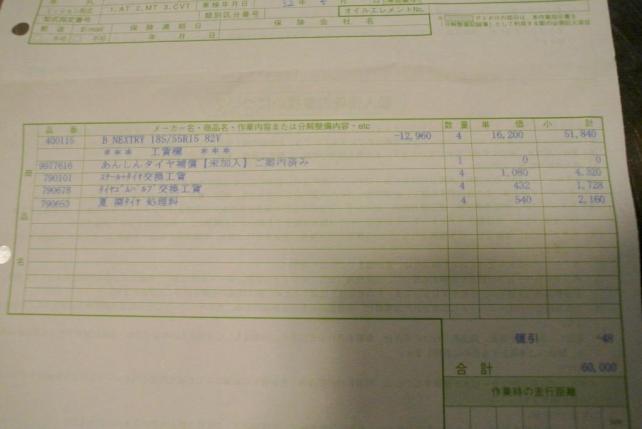 1. AT 2. MT 3. CVT 車検年月日 32年
型式指定番号 類別区分番号 オイルエレメントNo.
郵送 E-mail 保険満期日 保険会社名
不可 不可 年 月 日
品番 メーカー名・商品名・作業内容または分解整備内容・etc 数量 単価 小計
400115 B NEXTRY 185/55R15 82V -12,960 4 16,200 51,840
*** 工賃欄 ***
9977616 あんしんタイヤ補償【未加入】ご案内済み 1 0 0
790101 スチールタイヤ交換工賃 4 1,080 4,320
790678 タイヤゴムバルブ交換工賃 4 432 1,728
790653 夏 廃タイヤ 処理料 4 540 2,160
商品名
値引 -48
合計 60,000
作業時の走行距離
km